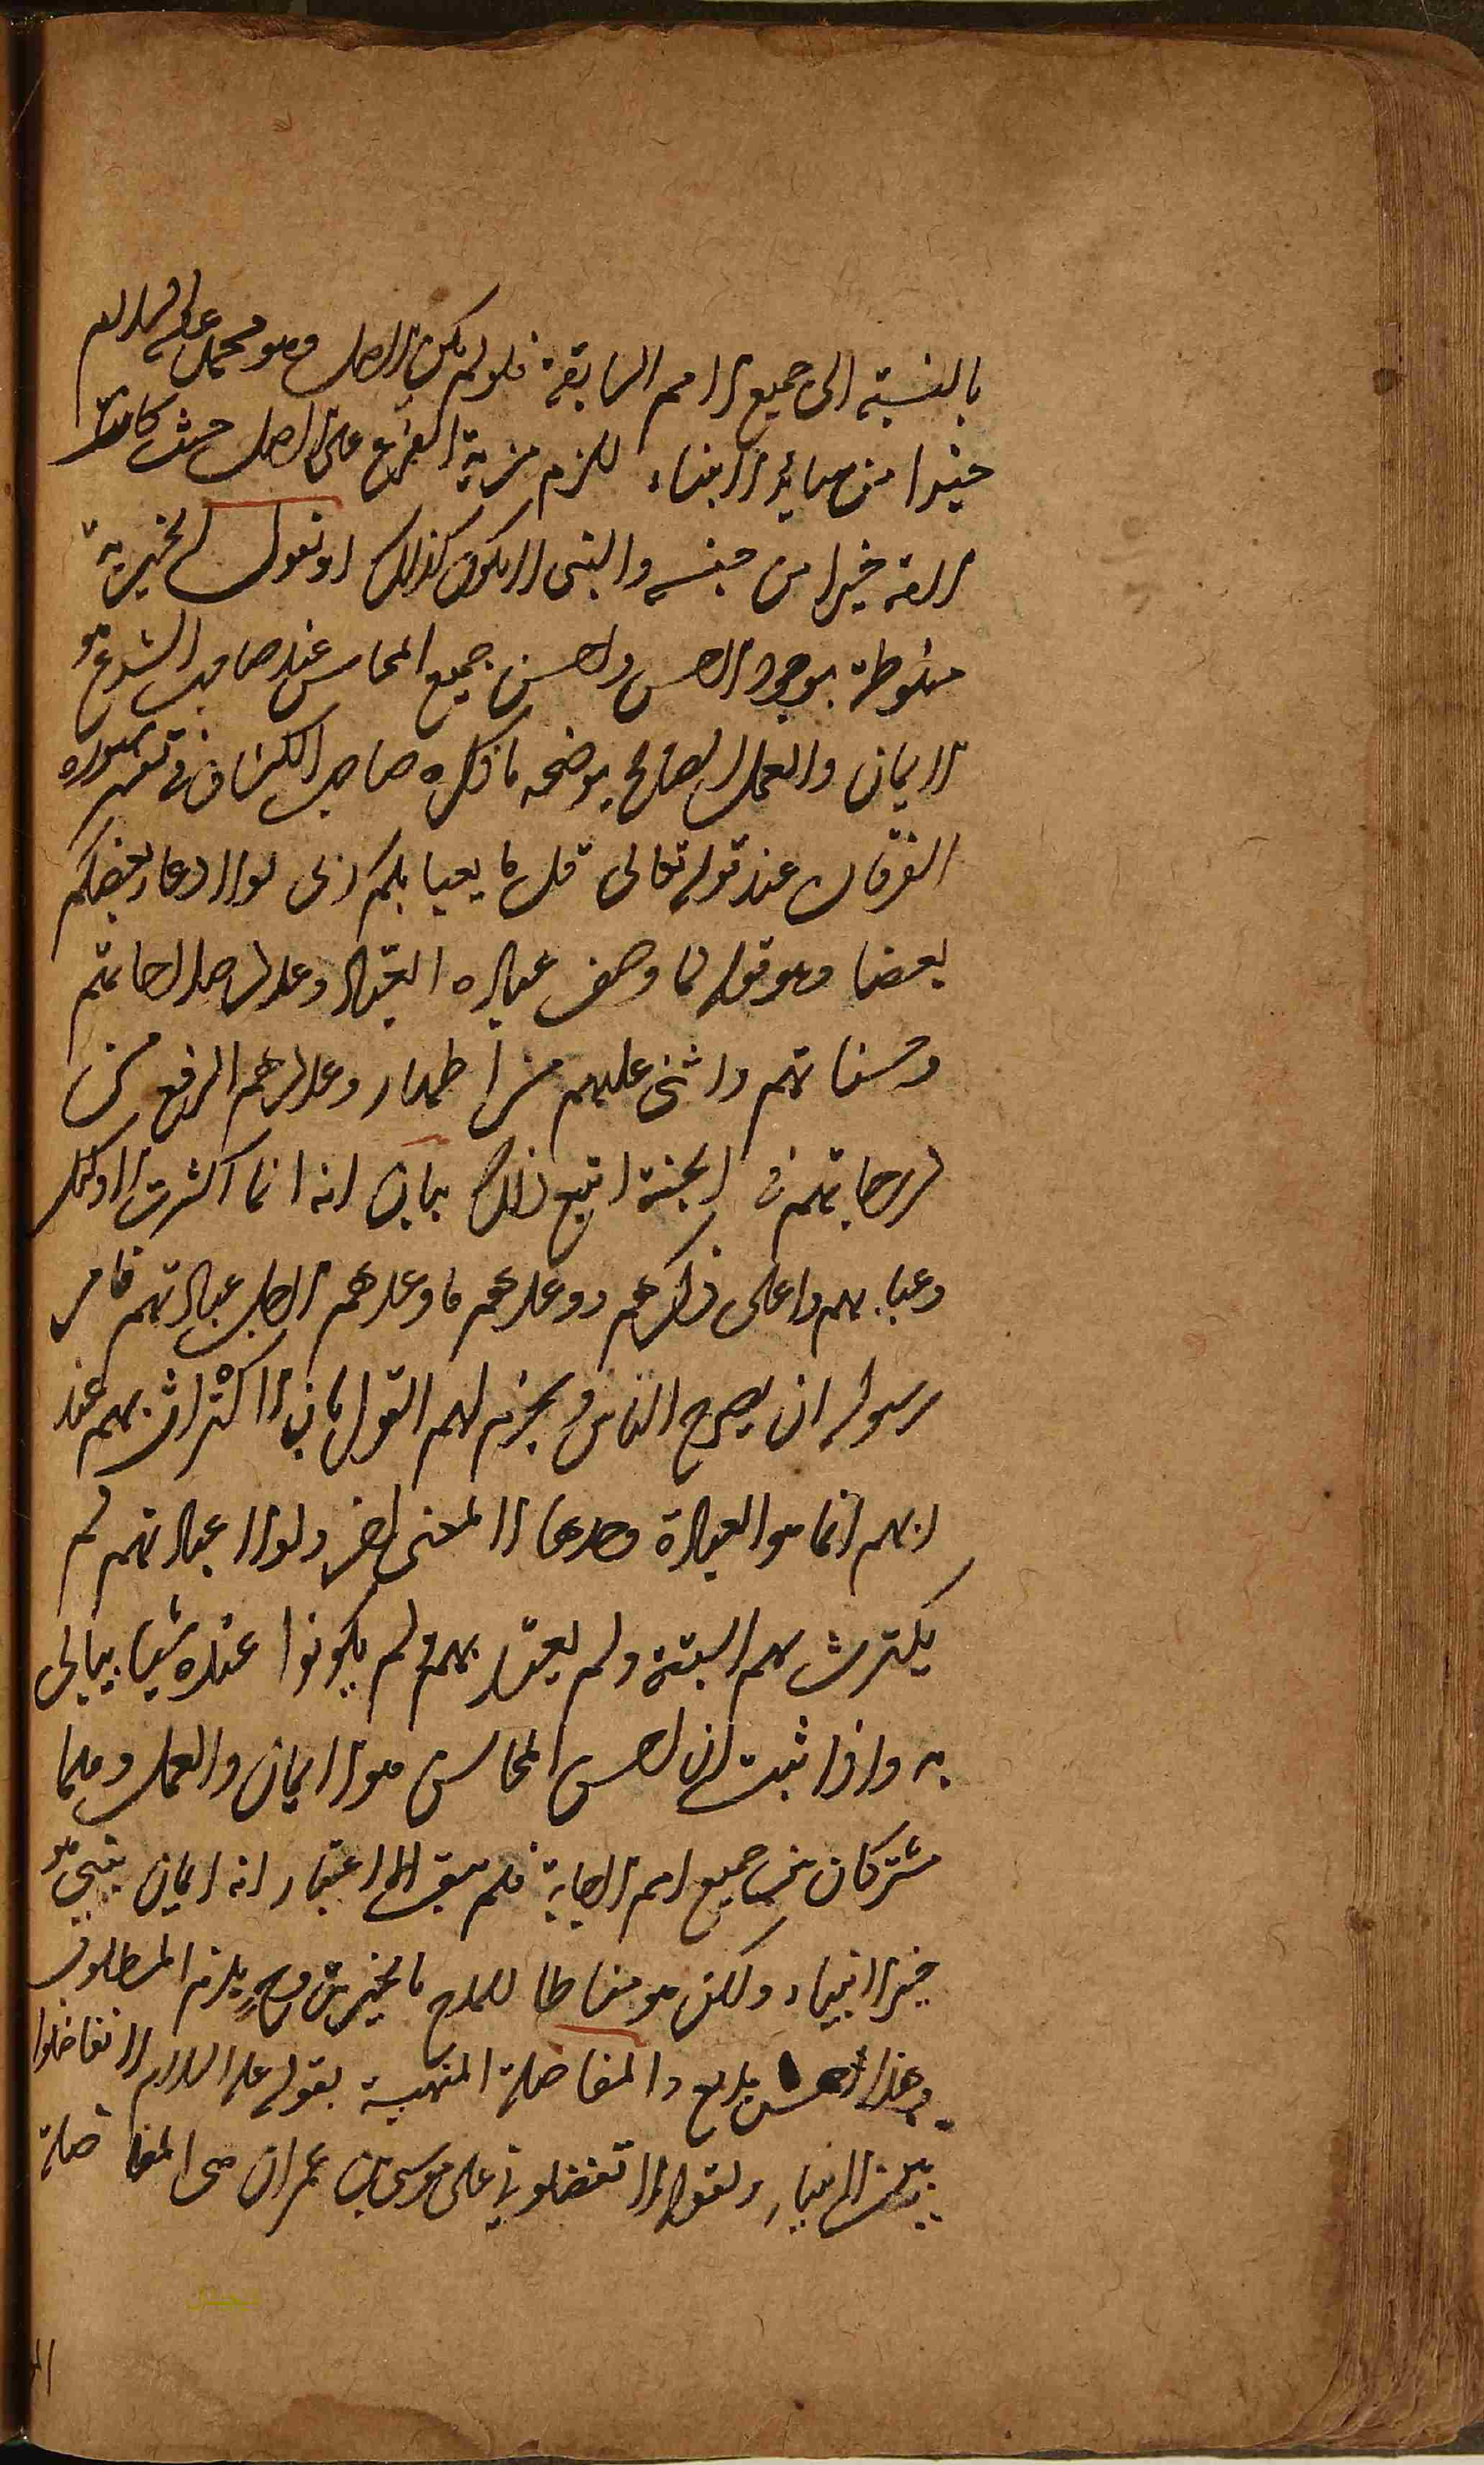 بالنسبة الى جميع الامم السابقة فلو لم يكن الاصل وهو محمد عليه السلام
خيرا من سائر الانبياء للزم مزية الفرع على الاصل حيث كانت
الامة خيرا من جنسه والنبى لا يكون كذلك او نقول الخيرية
منوطة بوجود الاحسن واحسن جميع المحاسن عند صاحب الشرع هو
الايمان والعمل الصالح يوضحه ما ذكره صاحب الكشاف فى تفسير سورة
الفرقان عند قوله تعالى قل ما يعبا بكم ربى لولا دعاء بعضكم
بعضا وهو قوله لما وصف عبادة العباد وعدد صالحاتهم
وحسناتهم واثنى عليهم من اجلها ووعدهم الرفع من
درجاتهم فى الجنة اتبع ذلك ببيان انه انما اكترث لاولئك
وعبا بهم واعلى ذكرهم ووعدهم ما وعدهم لاجل عبادتهم فامر
رسوله ان يصرح للناس ويجزم لهم القول بان الاكتراث بهم عند
ربهم انما هو العبادة وحدها لا لمعنى اخر ولولا عبادتهم لم
يكترث بهم البتة ولم يعتد بهم ولم يكونوا عنده شيا يبالى
به واذا ثبت ان احسن المحاسن هو الايمان والعمل وهما
مشتركان بين جميع امم الاجابة فلم يبق الا اعتبار انه ايمان بنبى هو
خير الانبياء ولكن هو مناطا للمدح بالخيرية وح يلزم المطلوب
وهذا احسن بديع والمفاضلة المنهية بقوله عليه السلام لا تفاضلوا
بين الانبياء وبقوله لا تفضلونى على موسى بن عمران هى المفاضلة